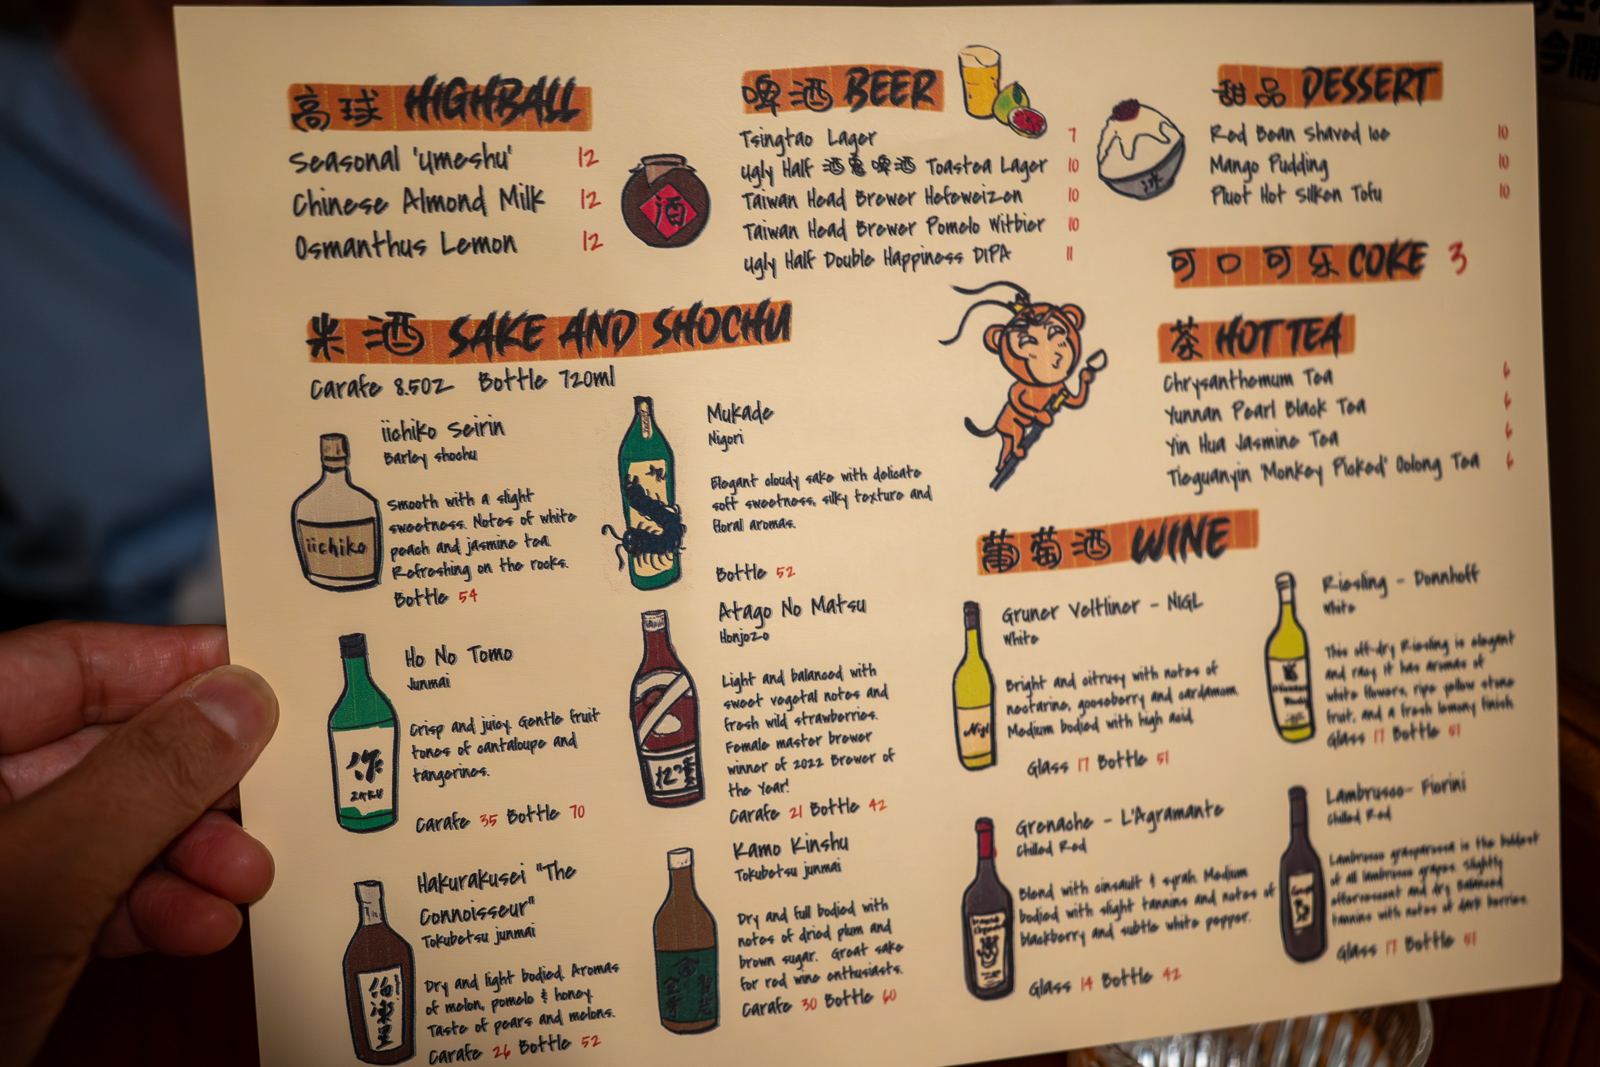 高球 HIGHBALL
Seasonal 'Umeshu' 12
Chinese Almond Milk 12
Osmanthus Lemon 12
酒
啤酒 BEER
Tsingtao Lager 7
Ugly Half 酒鬼啤酒 Toasted Lager 10
Taiwan Head Brewer Hefeweizen 10
Taiwan Head Brewer Pomelo Witbier 10
Ugly Half Double Happiness DIPA 11
甜品 DESSERT
Red Bean Shaved Ice 10
Mango Pudding 10
Pluot Hot Silken Tofu 10
冰
可口可乐 COKE 3
茶 HOT TEA
Chrysanthemum Tea 6
Yunnan Pearl Black Tea 6
Yin Hua Jasmine Tea 6
Tieguanyin 'Monkey Picked' Oolong Tea 6
米酒 SAKE AND SHOCHU
Carafe 8.5oz Bottle 720ml
iichiko Seirin
Barley shochu
Smooth with a slight
sweetness. Notes of white
peach and jasmine tea.
Refreshing on the rocks.
Bottle 54
iichiko
Mukade
Nigori
Elegant cloudy sake with delicate
soft sweetness, silky texture and
floral aromas.
Bottle 52
Ho No Tomo
Junmai
Crisp and juicy. Gentle fruit
tones of cantaloupe and
tangerines.
Carafe 35 Bottle 70
作
ZAKU
Atago No Matsu
Honjozo
Light and balanced with
sweet vegetal notes and
fresh wild strawberries.
Female master brewer
winner of 2022 Brewer of
the Year!
Carafe 21 Bottle 42
Hakurakusei "The
Connoisseur"
Tokubetsu junmai
Dry and light bodied. Aromas
of melon, pomelo & honey.
Taste of pears and melons.
Carafe 26 Bottle 52
伯楽星
Kamo Kinshu
Tokubetsu junmai
Dry and full bodied with
notes of dried plum and
brown sugar. Great sake
for red wine enthusiasts.
Carafe 30 Bottle 60
葡萄酒 WINE
Gruner Veltliner - NIGL
White
Bright and citrusy with notes of
nectarine, gooseberry and cardamom.
Medium bodied with high acid.
Glass 17 Bottle 51
Nigl
Riesling - Donnhoff
White
This off-dry Riesling is elegant
and racy. It has aromas of
white flowers, ripe yellow stone
fruit, and a fresh lemony finish
Glass 17 Bottle 51
Grenache - L'Agramante
Chilled Red
Blend with cinsault & syrah. Medium
bodied with slight tannins and notes of
blackberry and subtle white pepper.
Glass 14 Bottle 42
Lambrusco- Fiorini
Chilled Red
Lambrusco grasparossa is the boldest
of all lambrusco grapes. Slightly
effervescent and dry. Balanced
tannins with notes of dark berries.
Glass 17 Bottle 51